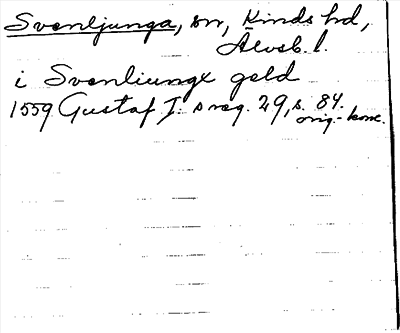 Svenljunga, sn, Kinds hd,
Älvsb. l.
i Svenliunge geld
1559 Gustaf I:s reg. 29, s. 84.
orig.-konc.